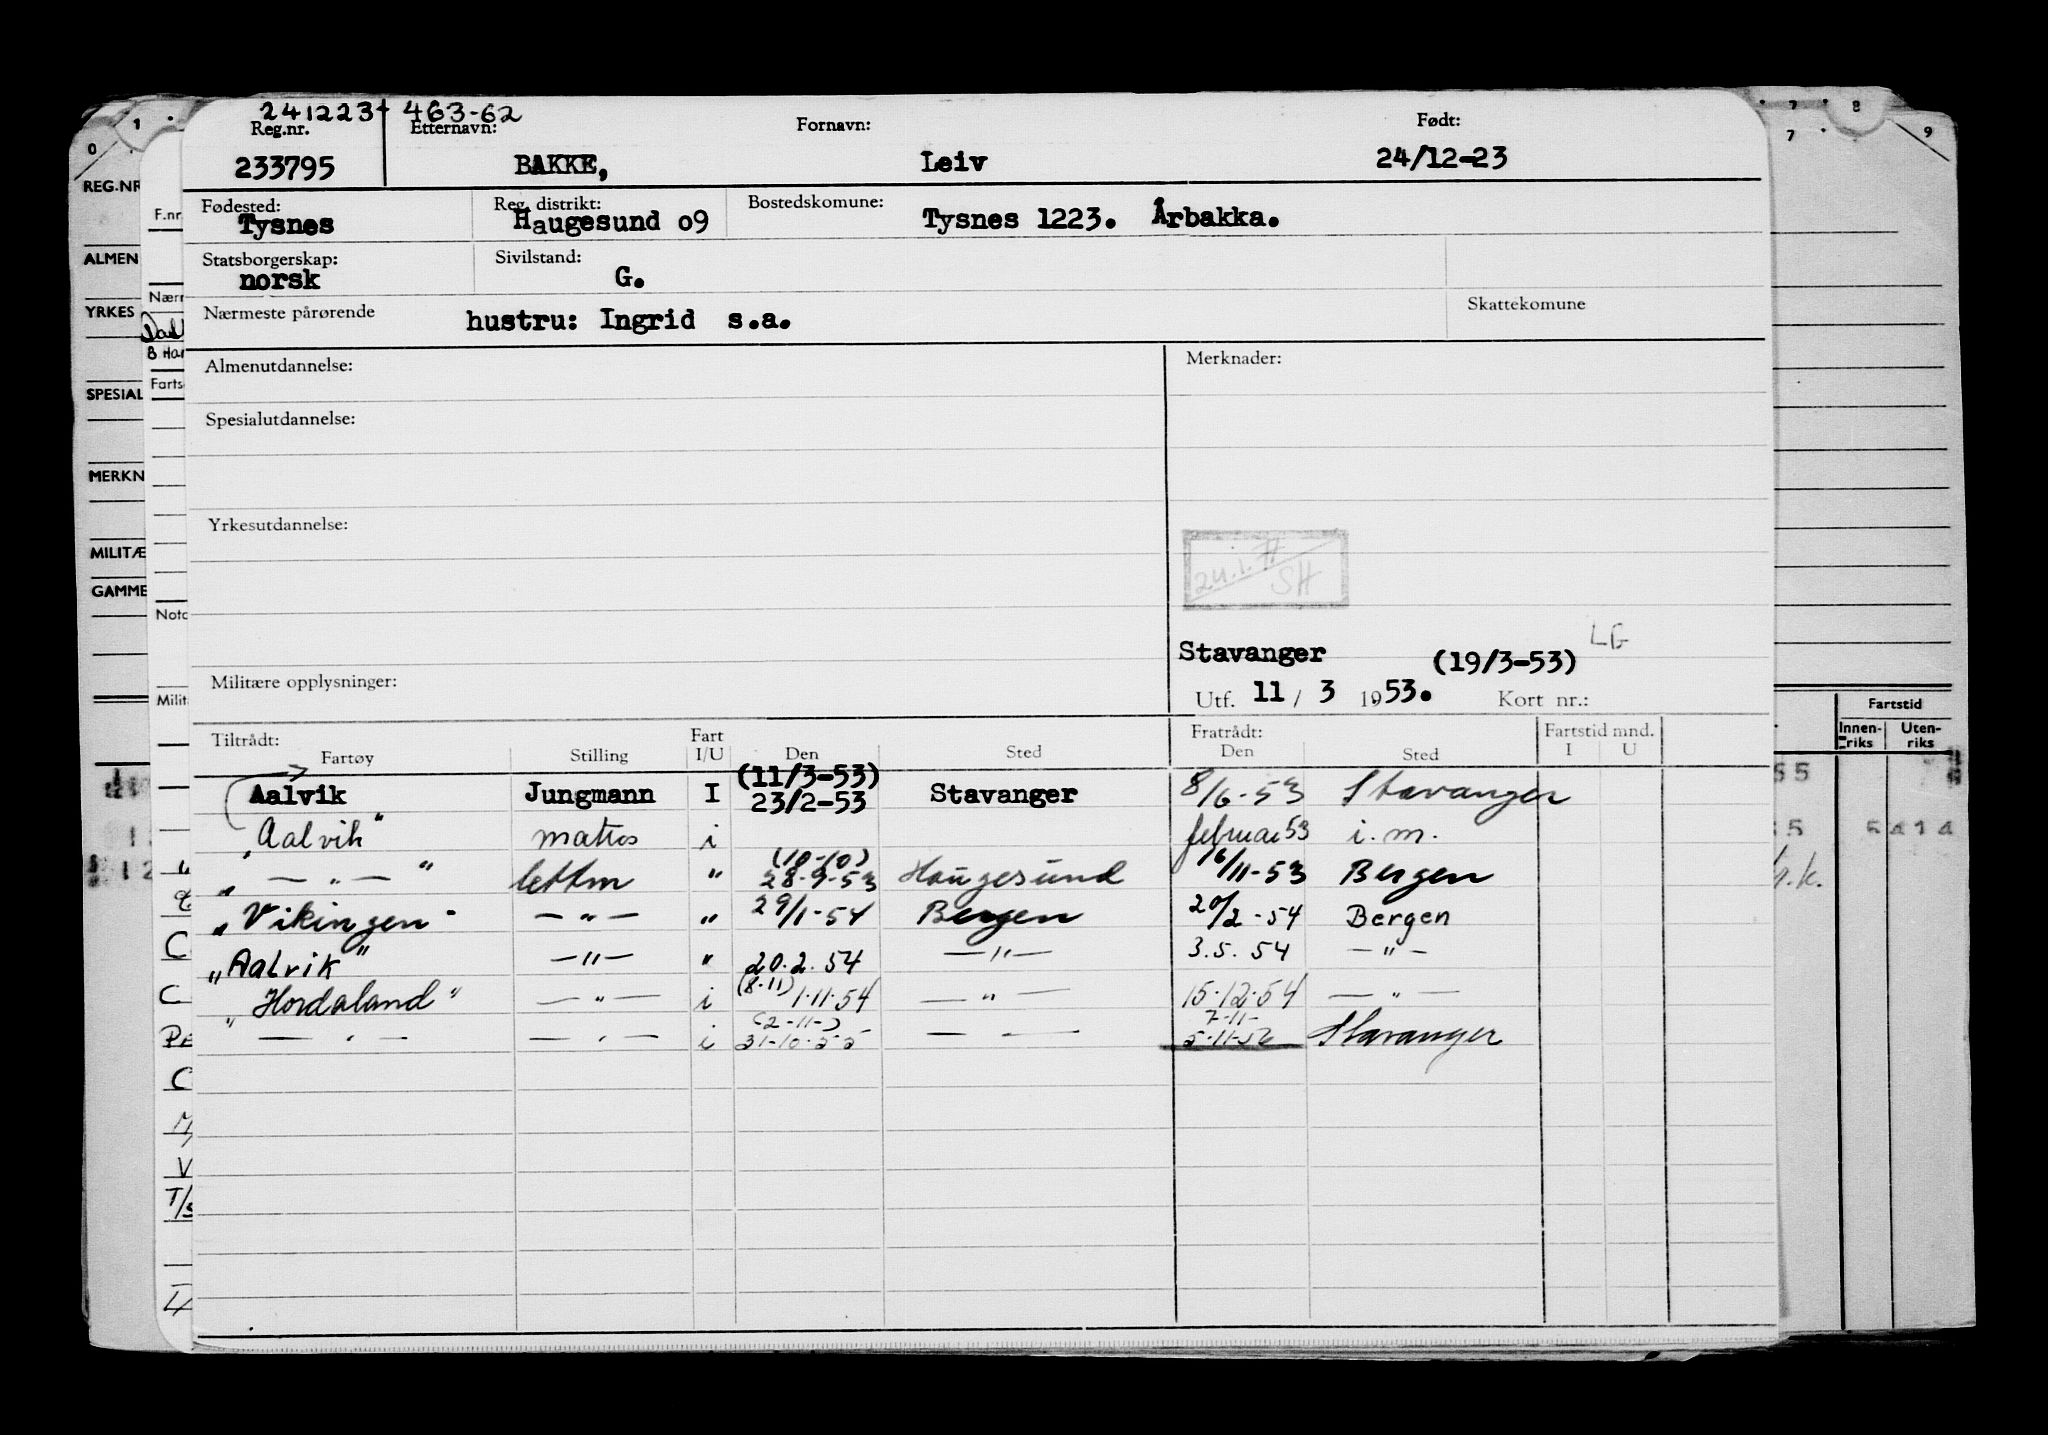 241223 463-62
Reg.nr. Etternavn: Fornavn: Født:
233795 BAKKE, Leiv 24/12-23
Fødested: Reg. distrikt: Bostedskomune:
Tysnes Haugesund o9 Tysnes 1223. Årbakka.
Statsborgerskap: Sivilstand:
norsk G.
Nærmeste pårørende hustru: Ingrid s.a. Skattekomune
Almenutdannelse: Merknader:
Spesialutdannelse:
Yrkesutdannelse:
SH
LG
Stavanger (19/3-53)
Militære opplysninger: Utf. 11 / 3 1953. Kort nr.:
Tiltrådt: Fart Fratrådt: Fartstid mnd.
Fartøy Stilling I/U Den Sted Den Sted I U
(11/3-53)
Aalvik Jungmann I 23/2-53 Stavanger 8/6-53 Stavanger
"Aalvik" matros i februar 53 i.m.
(10-10)
" — " — " lettm " 28-9-53 Haugesund 16/11-53 Bergen
"Vikingen" — " — " 29/1-54 Bergen 20/2-54 Bergen
"Aalvik" — " — " 20.2.54 — " — 3.5.54 — " —
"Hordaland" — " — i (8-11) 1.11.54 — " — 15.12.54 — " —
(2-11-) 7-11-
— " — — " — i 31-10-55 — " — 5-11-56 Stavanger
0 1 7 8 7 9
REG.NR
ALMEN
YRKES
SPESIAL
MERKN
MILITÆ
GAMME
F.nr
Nærr
B Har
Farts
Noto
Milit
Fartstid
Innen-riks Uten-riks
55